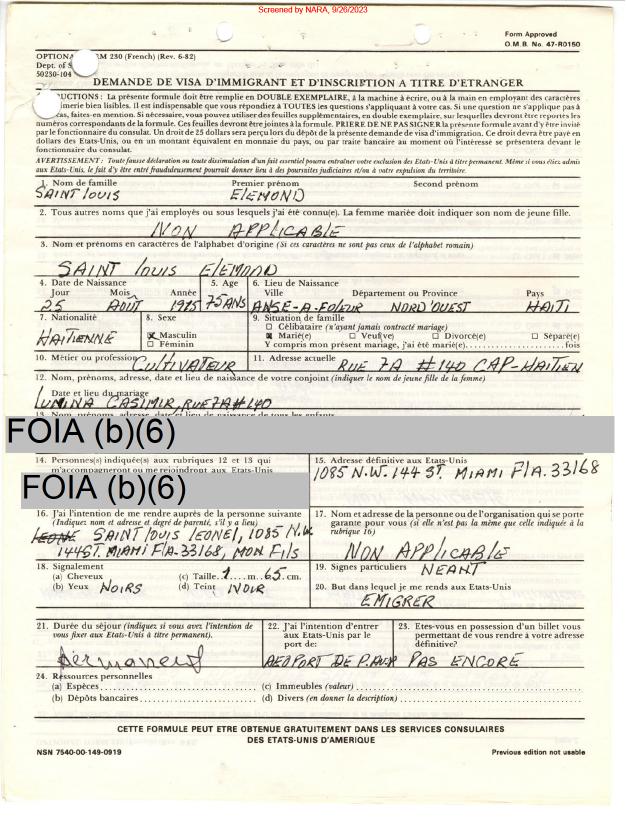 Screened by NARA, 9/26/2023
Form Approved
O.M.B. No. 47-R0150
OPTIONA RM 230 (French) (Rev. 6-82)
Dept. of S
50230-104
DEMANDE DE VISA D'IMMIGRANT ET D'INSCRIPTION A TITRE D'ETRANGER
RUCTIONS : La présente formule doit être remplie en DOUBLE EXEMPLAIRE, à la machine à écrire, ou à la main en employant des caractères
imerie bien lisibles. Il est indispensable que vous répondiez à TOUTES les questions s'appliquant à votre cas. Si une question ne s'applique pas à
cas, faites-en mention. Si nécessaire, vous pouvez utiliser des feuilles supplémentaires, en double exemplaire, sur lesquelles devront être reportés les
numéros correspondants de la formule. Ces feuilles devront être jointes à la formule. PRIERE DE NE PAS SIGNER la présente formule avant d'y être invité
par le fonctionnaire du consulat. Un droit de 25 dollars sera perçu lors du dépôt de la présente demande de visa d'immigration. Ce droit devra être payé en
dollars des Etats-Unis, ou en un montant équivalent en monnaie du pays, ou par traite bancaire au moment où l'intéressé se présentera devant le
fonctionnaire du consulat.
AVERTISSEMENT : Toute fausse déclaration ou toute dissimulation d'un fait essentiel pourra entraîner votre exclusion des Etats-Unis à titre permanent. Même si vous étiez admis
aux Etats-Unis, le fait d'y être entré frauduleusement pourrait donner lieu à des poursuites judiciaires et/ou à votre expulsion du territoire.
1. Nom de famille Premier prénom Second prénom
SAINT louis ElEMOND
2. Tous autres noms que j'ai employés ou sous lesquels j'ai été connu(e). La femme mariée doit indiquer son nom de jeune fille.
NON APPLICABLE
3. Nom et prénoms en caractères de l'alphabet d'origine (Si ces caractères ne sont pas ceux de l'alphabet romain)
SAINT louis ElEMOND
4. Date de Naissance 5. Age 6. Lieu de Naissance
Jour Mois Année Ville Département ou Province Pays
25 AOUT 1915 75 ANS ANSE-A-FOLEUR NORD'OUEST HAITI
7. Nationalité 8. Sexe 9. Situation de famille
HAITIENNE Masculin Célibataire (n'ayant jamais contracté mariage)
Féminin Marié(e) Veuf(ve) Divorcé(e) Séparé(e)
Y compris mon présent mariage, j'ai été marié(e) fois
10. Métier ou profession CULTIVATEUR 11. Adresse actuelle RUE 7A #140 CAP-HAITIEN
12. Nom, prénoms, adresse, date et lieu de naissance de votre conjoint (indiquer le nom de jeune fille de la femme)
Date et lieu du mariage
LUMINA CASIMIR, RUE 7A #140
13. Nom, prénoms, adresse, date et lieu de naissance de tous les enfants
FOIA (b)(6)
14. Personnes(s) indiquée(s) aux rubriques 12 et 13 qui
m'accompagneront ou me rejoindront aux Etats-Unis
FOIA (b)(6)
15. Adresse définitive aux Etats-Unis
1085 N.W. 144 ST. MIAMI F/A. 33168
16. J'ai l'intention de me rendre auprès de la personne suivante
(Indiquez nom et adresse et degré de parenté, s'il y a lieu)
SAINT louis lEONEl, 1085 N.W.
144 ST. MIAMI F/A. 33168, MON FIlS
17. Nom et adresse de la personne ou de l'organisation qui se porte
garante pour vous (si elle n'est pas la même que celle indiquée à la
rubrique 16)
NON APPLICABLE
18. Signalement
(a) Cheveux (c) Taille 1 m. 65 cm.
(b) Yeux NOIRS (d) Teint NOIR
19. Signes particuliers NEANT
20. But dans lequel je me rends aux Etats-Unis
EMIGRER
21. Durée du séjour (indiquez si vous avez l'intention de
vous fixer aux Etats-Unis à titre permanent).
permanent
22. J'ai l'intention d'entrer
aux Etats-Unis par le
port de:
AEOPORT DE P.AUP
23. Etes-vous en possession d'un billet vous
permettant de vous rendre à votre adresse
définitive?
PAS ENCORE
24. Ressources personnelles
(a) Espèces (c) Immeubles (valeur)
(b) Dépôts bancaires (d) Divers (en donner la description)
CETTE FORMULE PEUT ETRE OBTENUE GRATUITEMENT DANS LES SERVICES CONSULAIRES
DES ETATS-UNIS D'AMERIQUE
NSN 7540-00-149-0919 Previous edition not usable